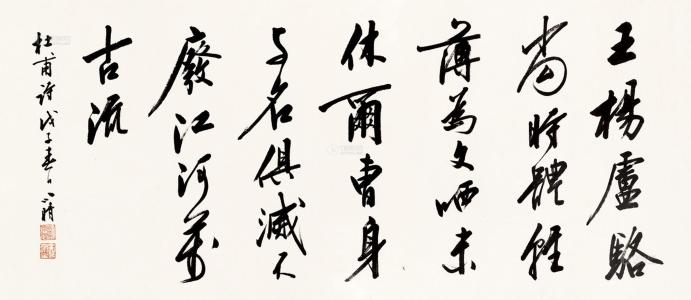 王楊盧駱
當時體輕
薄為文哂未
休爾曹身
與名俱滅不
廢江河萬
古流
杜甫詩戊子春日